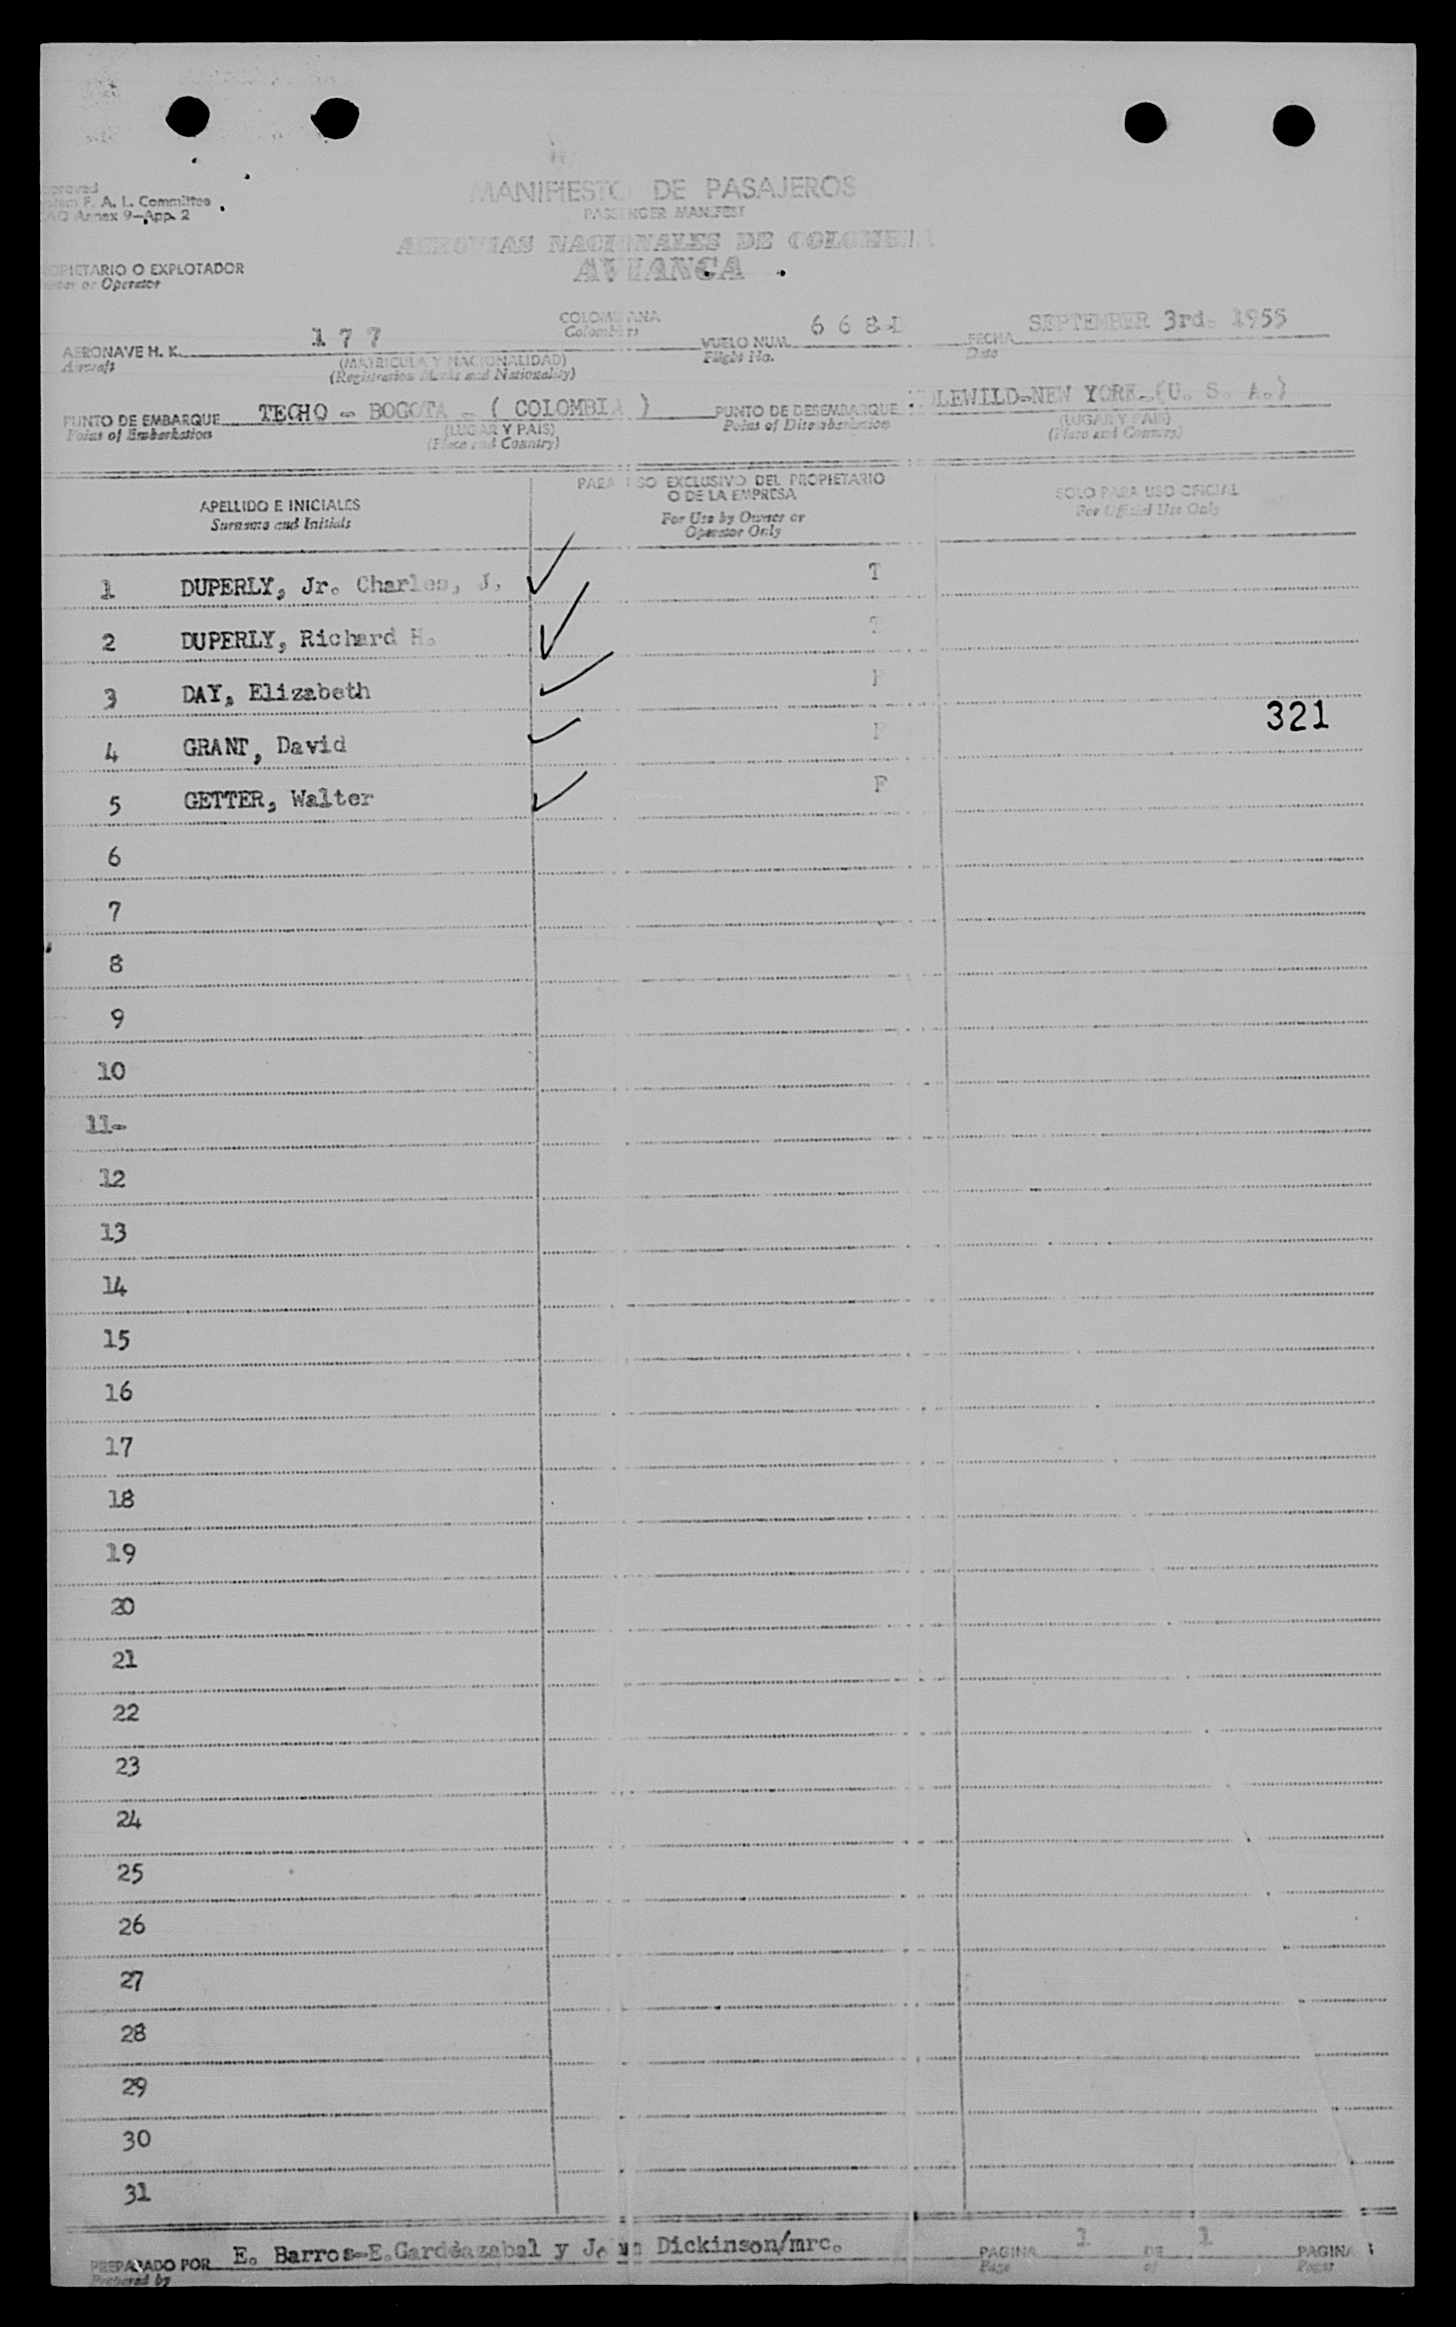 MANIFIESTO DE PASAJEROS
PASSENGER MANIFEST
F. A. L. Committee
Annex 9-App. 2
AEROVIAS NACIONALES DE COLOMBIA
AVIANCA
O EXPLOTADOR
or Operator
COLOMBIANA
AERONAVE H. K. 1 7 7 VUELO NUM. FECHA SEPTEMBER 3rd. 1955
Aircraft (MATRICULA Y NACIONALIDAD) Flight No. Date
(Registration Marks and Nationality)
PUNTO DE EMBARQUE TECHO - BOGOTA - ( COLOMBIA ) PUNTO DE DESEMBARQUE IDLEWILD-NEW YORK-(U. S. A.)
Point of Embarkation (LUGAR Y PAIS) Point of Disembarkation (LUGAR Y PAIS)
(Place and Country) (Place and Country)
APELLIDO E INICIALES PARA USO EXCLUSIVO DEL PROPIETARIO SOLO PARA USO OFICIAL
Surname and Initials O DE LA EMPRESA For Official Use Only
For Use by Owner or
Operator Only
1 DUPERLY, Jr. Charles, J. T
2 DUPERLY, Richard H. T
3 DAY, Elizabeth
4 GRANT, David
5 GETTER, Walter F
321
6
7
8
9
10
11-
12
13
14
15
16
17
18
19
20
21
22
23
24
25
26
27
28
29
30
31
PREPARADO POR E. Barros-E.Gardeazabal y Dickinson/mrc. PAGINA 1 DE 1 PAGINA
Prepared by Page of Pages